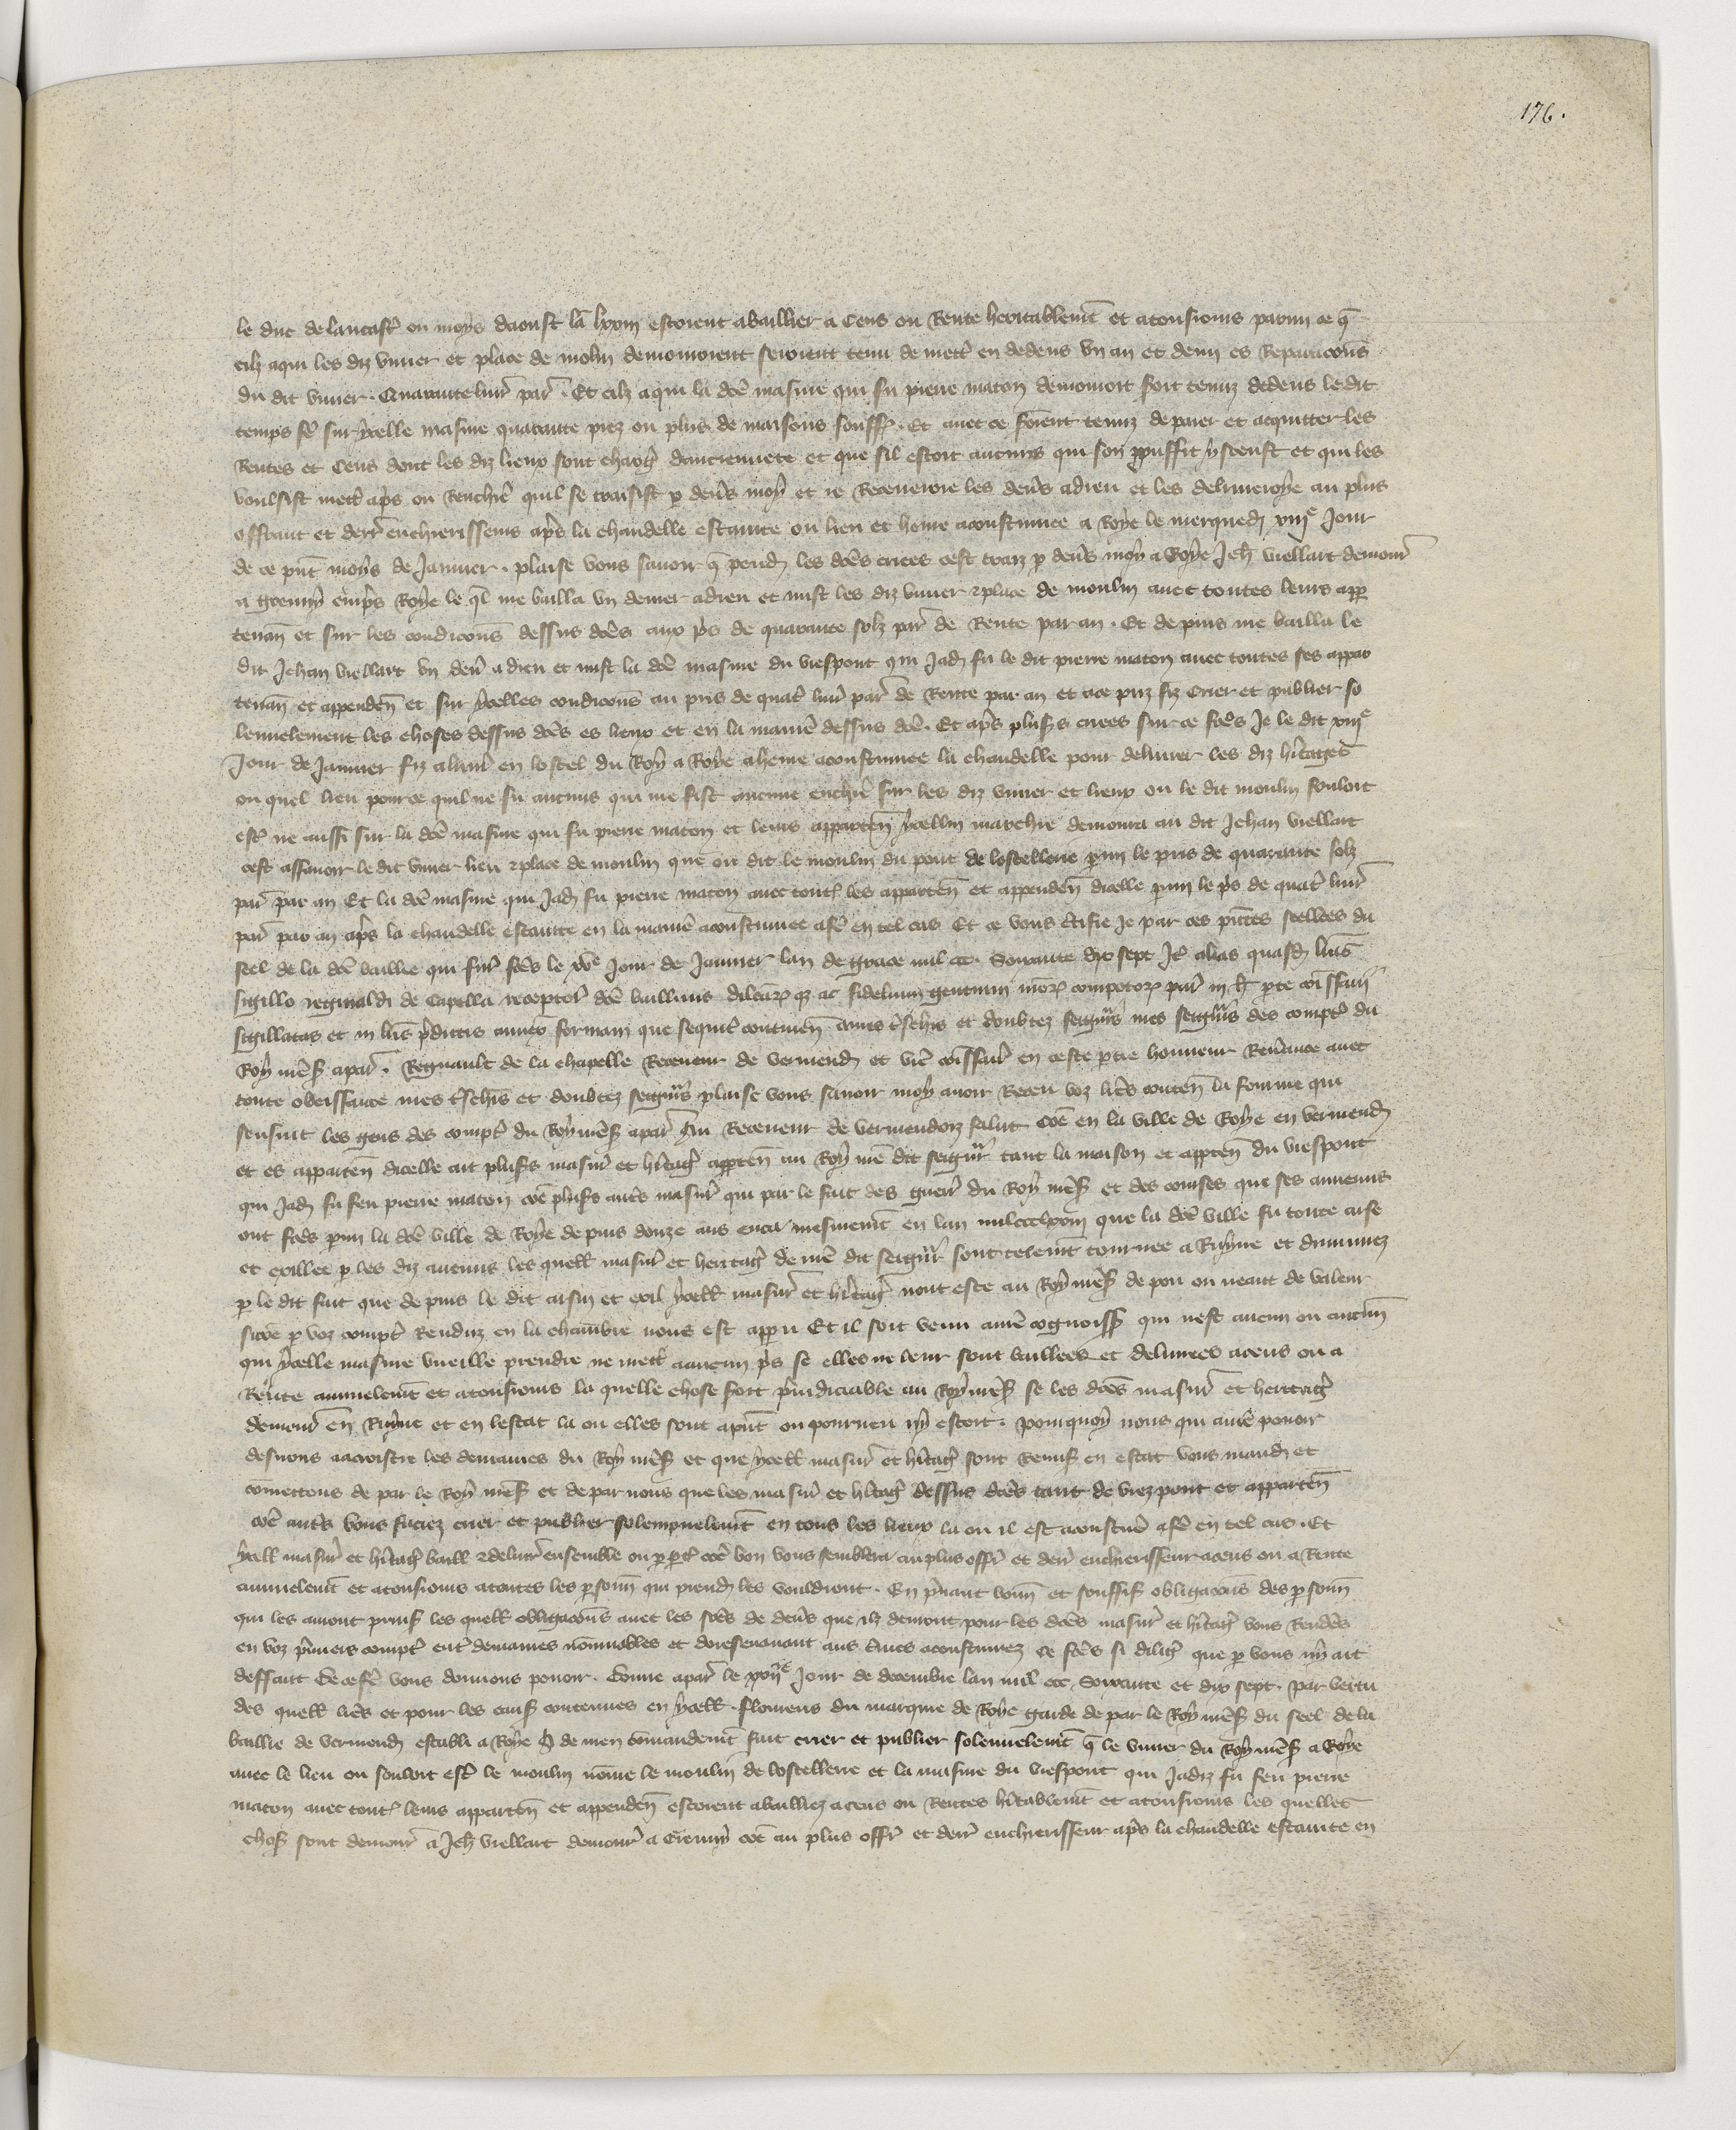 176.
le duc de lancastr̃ ou moys daoust lã lxxiii estoient abaillier a Cens ou Rente heritablem̃t et atousiours parmi ce q̃
cilz aqui les diz viuier et place de molin demorroient seroient tenu de mettr̃ en dedens vn an et demi es Reparacõns
du dit viuier . Quarante liur̃ par̃ . Et cilz aqui la dc̃e masure qui fu pierre maton demorroit soit tenuz dedens ledit
temps fẽ sur ycelle masure quarante piez ou plus de maisons souff̃ . Et auec ce soient tenuz de paier et acquitter les
Rentes et Cens dont les diz lieux sont chargẽ danciennete et que sil estoit aucuns qui son prouffit y sceust et qui les
voulsist mettr̃ apr̃s ou Renchier̃ quil se traisist p deũs moy et ie Receueroie les den̄s adieu et les deliureroye au plus
offrant et derr̃ encherisseurs apr̃s la chandelle estainte ou lieu et heure acoustumee a Roye le merquedj xiiiᵉ Jour
de ce pñt moys de Januier . plaise vous sauoir q̃ pendñ les dc̃es criees cest traiz p deũs moy a Roye Jeh̃ viellart demour̃
a gremny empr̃s Roye le q̃l me bailla vn denier adieu et mist les diz viuier ⁊ place de moulin auec toutes leurs app
tenañ et sur les condicõns dessus dc̃es aux pr̃s de quarante solz par̃ de Rente par an . Et depuis me bailla le
dit Jehan viellart vn den̄ adieu et mist la dc̃e masure du viespont qui Jadj fu le dit pierre maton auec toutes ses appar
tenañ et appendeñ et sur ycelles condicõns au pris de quatr̃ liur̃ par̃ de Rente par an et ace priz fiz crier et publier so
lennelement les choses dessus dc̃es es lieux et en la manier̃ dessus dc̃e . Et apr̃s plus̃s criees sur ce fc̃es Je le dit xiiiᵉ
Jour de Januier fiz alumer en lostel du Roy a Roye aheure acoustumee la chandelle pour deliurer les diz hr̃itages
ou quel lieu pource quil ne fu aucuns qui me fist aucune enchier̃ sur les diz viuier et lieux ou le dit moulin souloit
estr̃ ne aussi sur la dc̃e masure qui fu pierre maton et leurs apparteñ ycellui marchie demoura au dit Jehan viellart
cest assauoir ledit viuier lieu ⁊ place de moulin que on dit le moulin du pont de lostellerie pmi le pris de quarante solz
par̃ par an Et la dc̃e masure qui Jadj fu pierre maton auec toutes les apparteñ et appendeñ dicelle pmi le pr̃s de quatr̃ liur̃
par̃ par an apr̃s la chandelle estainte en la manier̃ acoustumee afẽ en tel cas Et ce vous c̃tifie Je par ces pñtes seellees du
seel de la dc̃e baillie qui fur̃ fc̃es le xvᵉ Jour de Januier lan de grace mil ccc . Soixante dix sept Jt̃ alias quasdj lr̃as
sigillo reginaldi de Capella receptor̃ dc̃e baillinis dilc̃orꝝ qꝫ ac fidelium gentium nr̃orꝝ compotorꝝ par̃ in h̃ pte cõissar̃
sigillatas et in lr̃is pdictis annexo formam que sequitr̃ contineñ Amis tr̃schiers et doubtez seigñrs mes seigñrs des compts du
Roy nr̃es̃ apar̃ . Regnault de la chapelle Receueur de vermendj et vr̃e cõissair̃ en ceste ptie honneur Reuerance auec
toute obeissance mes tr̃schiers et doubtez seigñrs plaise vous sauoir moy auoir Receu voz lr̃es conteñ la fourme qui
sensuit les gens des compts du Roy nr̃es̃ apar̃ Au Receueur de vermendoiz salut cõe en la ville de Roye en vermendj
et es apparteñ dicelle ait plus̃s masur̃ et hr̃itages appteñ au Roy nr̃e dit seigñr tant la maison et appteñ du viespont
qui Jadj fu feu pierre maton cõe plus̃s autr̃s masur̃ qui par le fait des guerr̃ du Roy nr̃es̃ et des courses que ses annemis
ont fc̃es pmi la dc̃e ville de Roye depuis douze ans enca mesmem̃t en lan mil ccclxxiii que la dc̃e ville fu toute arse
et exillee p les diz anemis les quell̃ masur̃ et heritagẽ de nr̃e dit seigñr sont telem̃t tournee a Ruyne et diminuez
p le dit fait que depuis le dit arsin et exil ycell̃ masur̃ et hr̃itagẽ nont este au Roy nr̃es̃ de pou ou neant de valeur
sicõe p voz compts Renduz en la chambre nous est apparu Et il soit venu anr̃e cognoiss̃ qui nest aucun ou aucuñ
qui ycelle masure vueille prendre ne mettr̃ aaucun pr̃s se elles ne leur sont baillees et deliurees acens ou a
Rente annuelem̃t et atousiours la quelle chose soit p̃iudiciable au Roy nr̃es̃ se les dc̃es masur̃ et heritagẽ
demeur̃ en Ruyne et en lestat la ou elles sont apñt ou pourueu ny estoit . pourquoy nous qui auõs pouoir
desirons aacroistre les demaines du Roy nr̃es̃ et que ycell̃ masur̃ et hr̃itagẽ sont Remis̃ en estat vous mandj et
cõmettons de par le Roy nr̃es̃ et de par nous que les masur̃ et hr̃itagẽ dessus dc̃es tant de viezpont et apparteñ
cõe autr̃s vous faciez crier et publier solempnelem̃t en tous les lieux la ou il est acoustumẽ afẽ en tel cas . Et
ycell̃ masur̃ et hr̃itagẽ baill̃ ⁊ deliur̃ ensemble ou p ptiẽ cõe bon vous semblera au plus offr̃ et derr̃ encherisseur acens ou a Rente
annuelem̃t et atousiours atoutes les psoñ qui prendr̃ les vouldront . En pr̃nant bonñ et souffis̃ obligacõns des psoñ
qui les auront prins̃ les quell̃ obligacõns auec les fc̃es de deũs que ilz demorront pour les dc̃es masur̃ et hr̃itagẽ vous Rendẽs
en voz p̃miers compts entr̃ demaines nõmuables et doresenauant aus t̃mes acoustumez ce fc̃es si diligẽ que p vous ny ait
deffaut De cefẽ vous donnons pouoir . Donne apar̃ le xviiᵉ Jour de decembre lan mil ccc Soixante et dix sept . par vertu
des quell̃ lr̃es et pour les caus̃ contenues en ycell̃ . Flourens du marquie de Roye garde de par le Roy nr̃es̃ du seel de la
baillie de vermendj establi a Roye de mon cõmandem̃t fait crier et publier solennelem̃t q̃ le viuier du Roy nr̃es̃ a Roye
auec le lieu ou souloit estr̃ le moulin nõme le moulin de lostellerie et la masure du viespont qui Jadiz fu feu pierre
maton auec toutes leurs apparteñ et appendeñ estoient abailliez acens ou Rentes hr̃itablem̃t et atousiours les quelles
chos̃ sont demour̃ a Jeh̃ viellart demour̃ a Cremny cõe au plus offr̃ et derr̃ encherisseur apr̃s la chandelle estainte en